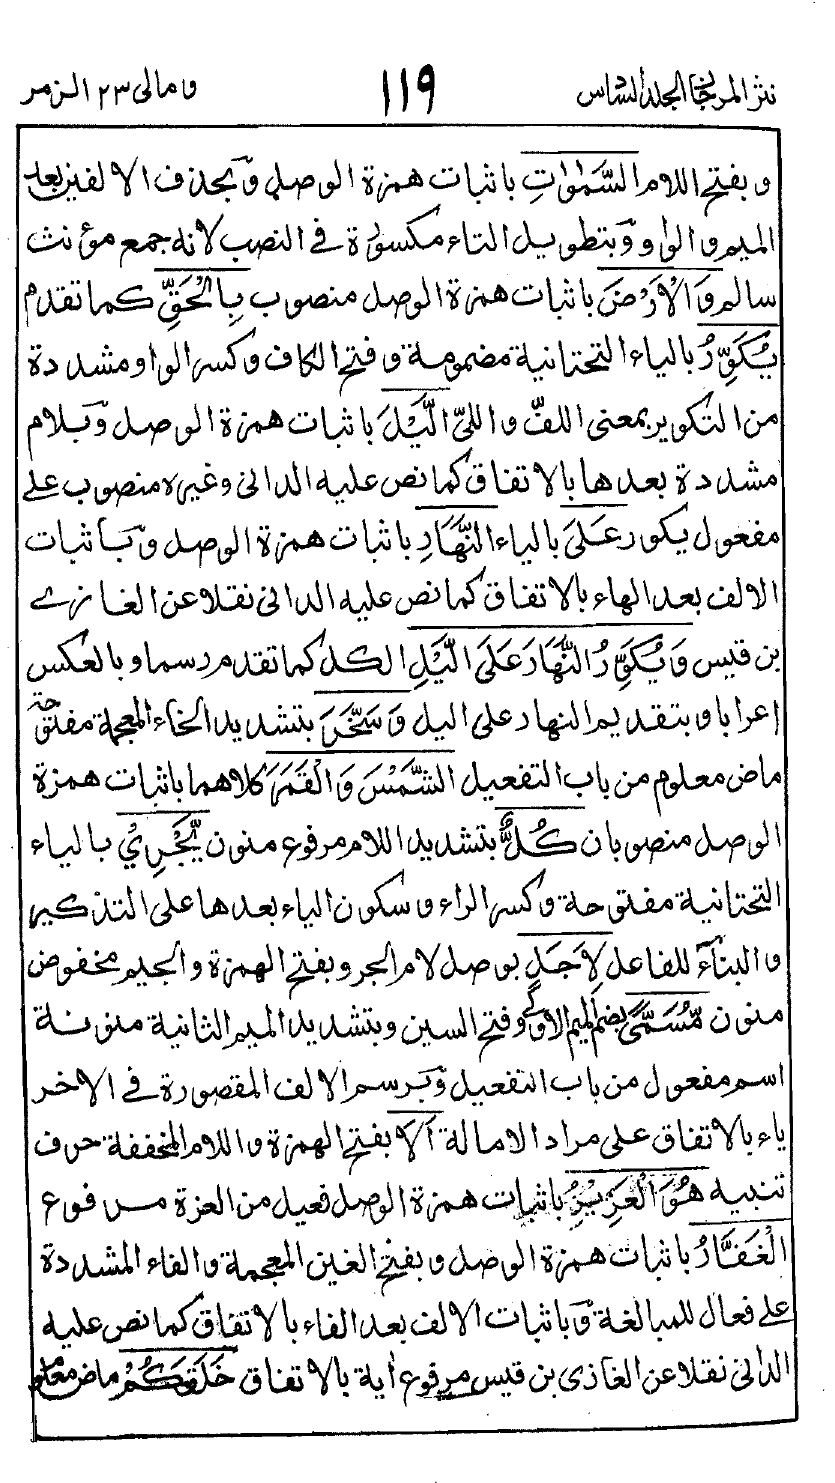 نثر المرجان الجلد السادس
١١٩
ومالی ٢٣ الزمر
وبفتح اللام السَّمٰوٰاتِ باثبات همزة الوصل وَبحذف الالفين بعد
الميم والواو وَبتطويل التاء مكسورة في النصب لانه جمع مؤنث
سالم وَالْاَرْضَ باثبات همزة الوصل منصوب بِالْحَقِّ كما تقدم
يُكَوِّرُ بالياء التحتانية مضمومة وفتح الكاف وكسر الواو مشددة
من التكوير بمعنى اللفّ واللیّ الَّيْلَ باثبات همزة الوصل وَبلام
مشددة بعدها بالاتفاق كما نص عليه الدانی وغيره منصوب على
مفعول يكور عَلَى بالياء النَّهَارِ باثبات همزة الوصل وَباثبات
الالف بعد الهاء بالاتفاق كما نص عليه الدانی نقلا عن الغازے
بن قيس وَيُكَوِّرُ النَّهَارَ عَلَى الَّيْلِ الكل كما تقدم رسما وبالعكس
إعرابا وبتقديم النهار على اليل وَسَخَّرَ بتشديد الخاء المعجمة مفتوحة
ماض معلوم من باب التفعيل الشَّمْسَ وَالْقَمَرَ كلاهما باثبات همزة
الوصل منصوبان كُلٌّ بتشديد اللام مرفوع منون يَّجْرِيْ بالياء
التحتانية مفتوحة وكسر الراء وسكون الياء بعدها على التذكير
والبنآء للفاعل لِاَجَلٍ بوصل لام الجر وبفتح الهمزة والجيم مخفوض
منون مُّسَمًّى بضم الميم الاولى وفتح السين وبتشديد الميم الثانية منونة
اسم مفعول من باب التفعيل وَبرسم الالف المقصورة في الاخر
ياء بالاتفاق على مراد الامالة اَلَا بفتح الهمزة واللام المخففة حرف
تنبيه هُوَ الْعَزِيْزُ باثبات همزة الوصل فعيل من العزة مرفوع
الْغَفَّارُ باثبات همزة الوصل وبفتح الغين المعجمة والفاء المشددة
على فعال للمبالغة وَباثبات الالف بعد الفاء بالاتفاق كما نص عليه
الدانی نقلا عن الغازی بن قيس مرفوع أية بالاتفاق خَلَقَكُمْ ماض معلوم